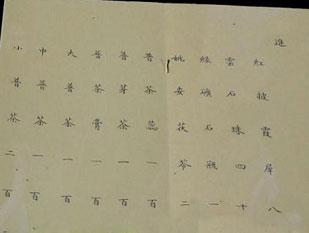 進
紅披霞犀八
雲石珠四十
緑礦石瓶一
姚安茯苓二
普茶蕊一百
普芽茶一百
普茶膏一百
大普茶一百
中普茶一百
小普茶二百